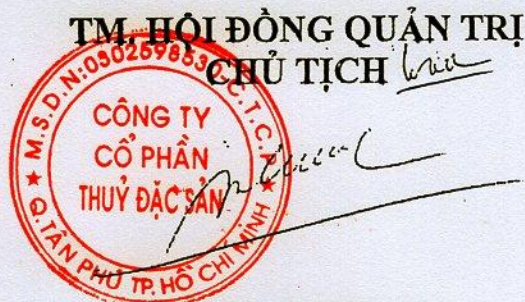 TM. HỘI ĐỒNG QUẢN TRỊ
CHỦ TỊCH
M.S.D.N:0302598530-C.T.C.P
CÔNG TY
CỔ PHẦN
THUỶ ĐẶC SẢN
Q.TÂN PHÚ TP. HỒ CHÍ MINH